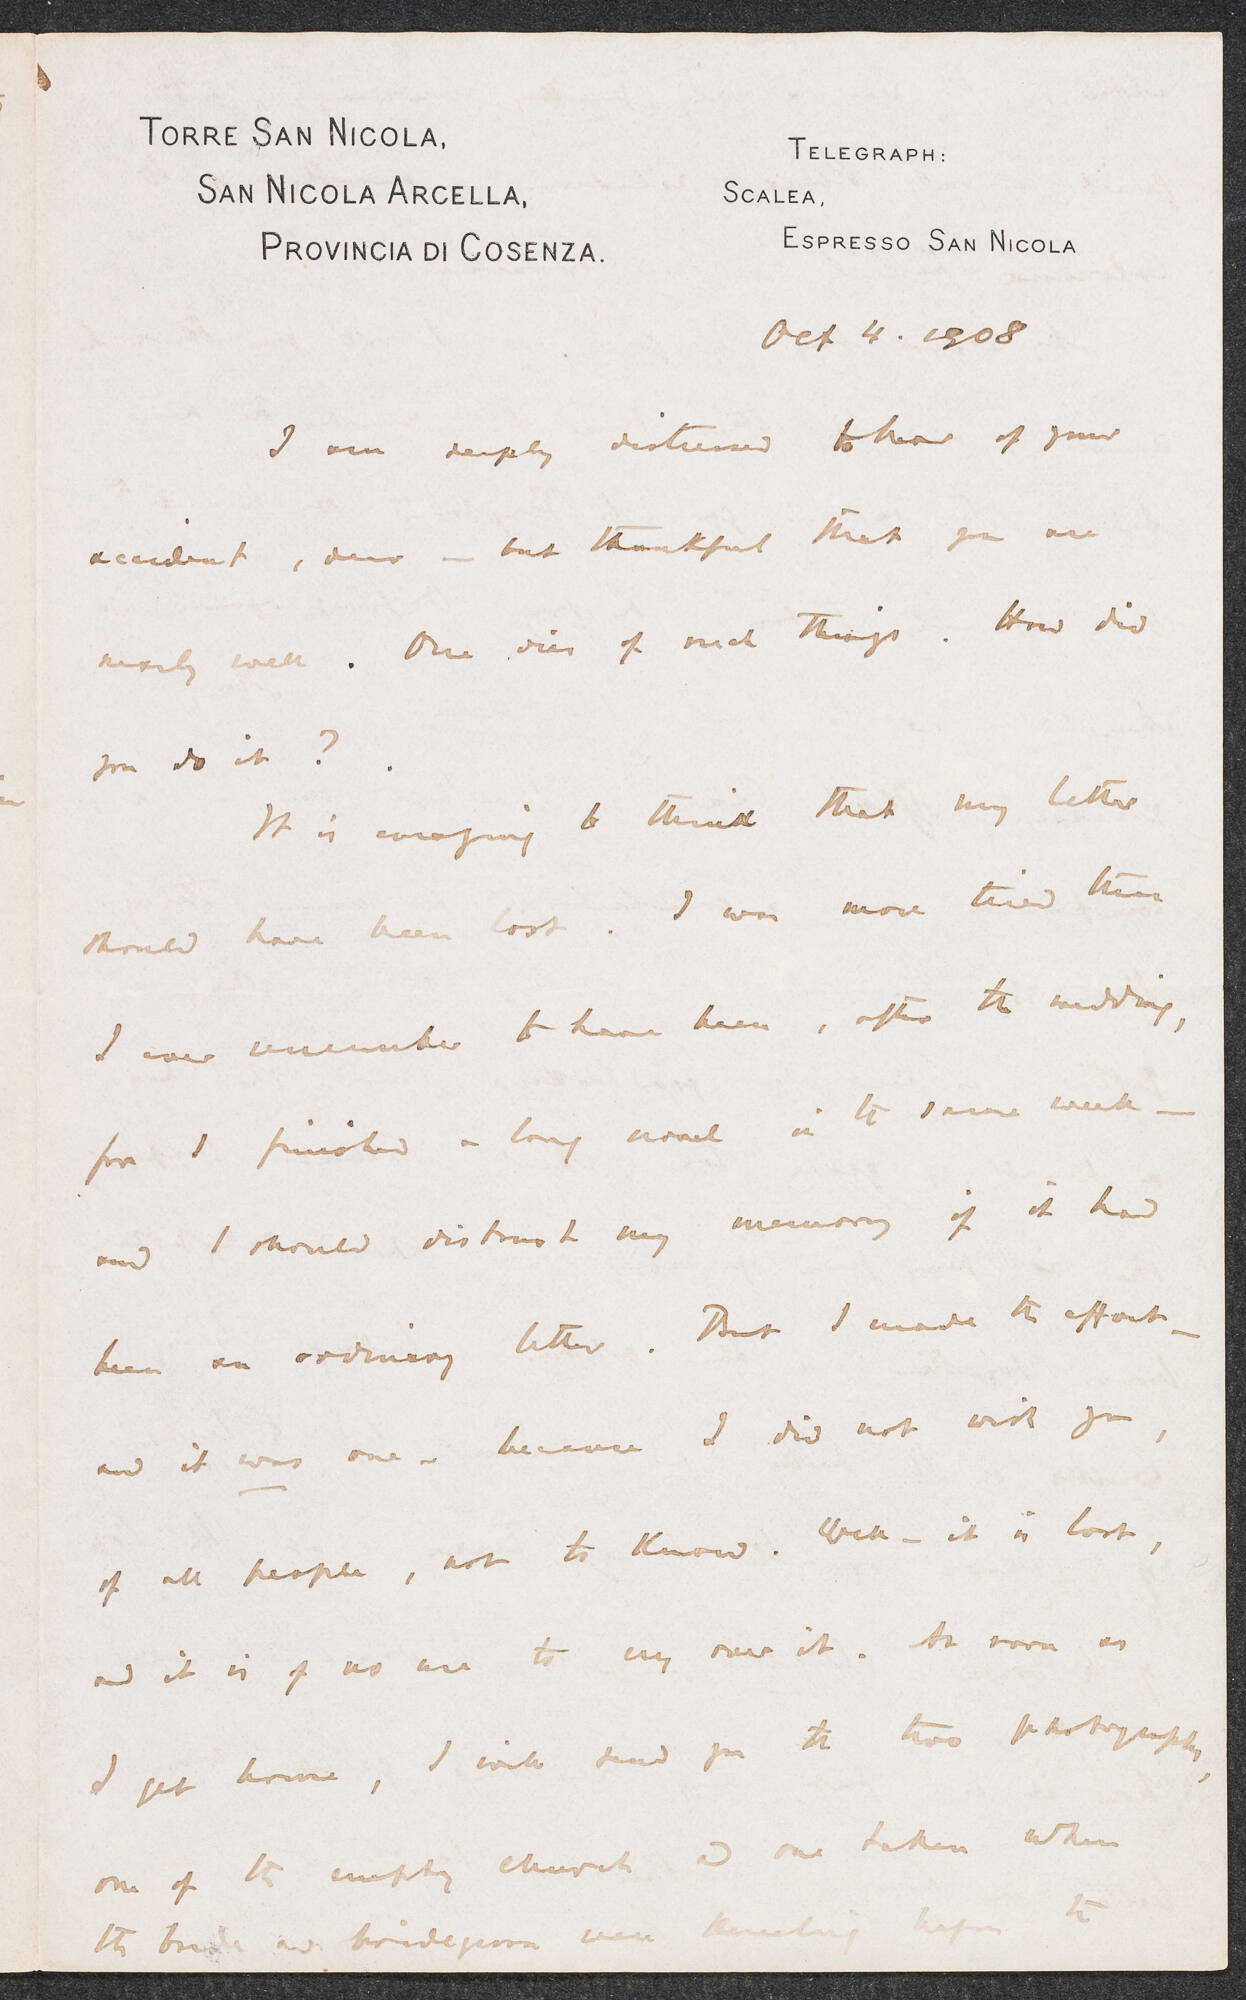 TORRE SAN NICOLA,
SAN NICOLA ARCELLA,
PROVINCIA DI COSENZA.
TELEGRAPH:
SCALEA,
ESPRESSO SAN NICOLA
Oct 4. 1908
I am deeply distressed to hear of your
accident, dear – but thankful that you are
nearly well. One dies of such things. How did
you do it?.
It is enraging to think that my letter
should have been lost. I was more tired than
I ever remember to have been, after the wedding,
for I finished a long novel in the same week –
and I should distrust my memory if it had
been an ordinary letter. But I made the effort –
and it was one – because I did not wish you,
of all people, not to know. Well – it is lost,
and it is of no use to my over it. As soon as
I get home, I will send you the two photographs,
one of the empty church and one taken when
the bride and bridegroom were kneeling before the